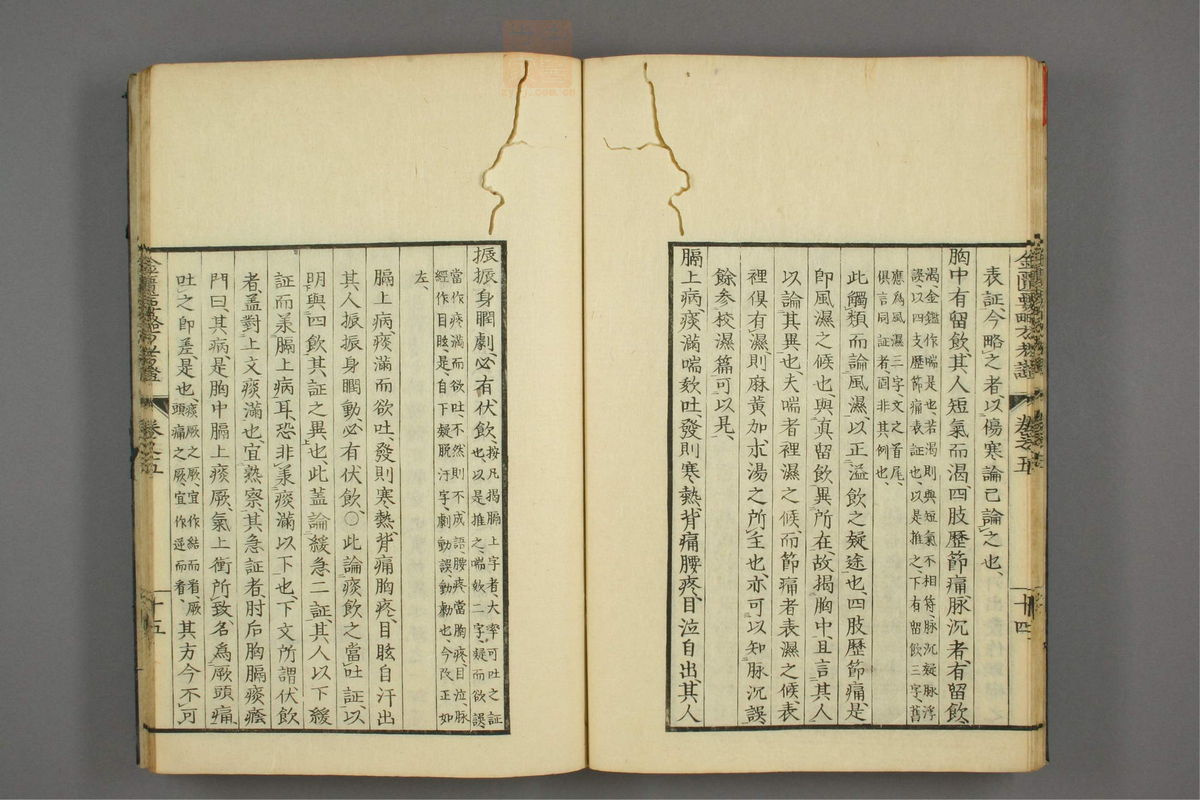 表証、今略之者、以傷寒論已論之也、
胸中有留飲、其人短氣而渴、四肢歷節痛、脉沉者、有留飲、
渴、金鑑作喘、是也、若渴則與短氣不相符、脉沉疑脉浮
誤、以四支歷節痛表証也、以是推之、下有留飲三字、舊
應為風濕三字、文之首尾、
俱言同証者、固非其例也、
此觸類而論風濕、以正溢飲之疑途也、四肢歷節痛、是
即風濕之候也、與真留飲異所在、故揭胸中、且言其人
以論其異也、夫喘者裡濕之候、而節痛者表濕之候、表
裡俱有濕、則麻黄加朮湯之所主也、亦可以知脉沉誤、
餘参校濕篇可以見、
膈上病、痰滿喘欬吐、發則寒熱、背痛腰疼、目泣自出、其人
振振身瞤劇、必有伏飲、
按凡揭膈上字者、大率可吐之証
也、以是推之、喘欬二字、疑而欲誤、
當作痰滿而欲吐、不然則不成語、腰疼當胸疼、目泣、脉
經作目眩、是、自下疑脫汗字、劇動誤、動勮也、今改正如
左、
膈上病、痰滿而欲吐、發則寒熱、背痛胸疼、目眩自汗出
其人振振身瞤動、必有伏飲、〇此論痰飲之當吐証、以
明與四飲其証之異也、此蓋論緩急二証、其人以下緩
証而羕膈上病耳、恐非羕痰滿以下也、下文所謂伏飲
者、蓋對上文痰滿也、宜熟察其急証者、肘后胸膈痰癊
門曰、其病是胸中膈上痰厥、氣上衝所致、名爲厥頭痛
吐之即差、是也、
痰厥之厥、宜作結而看、厥
頭痛之厥、宜作逆而看、
其方今不可
卷之五
十四
十五